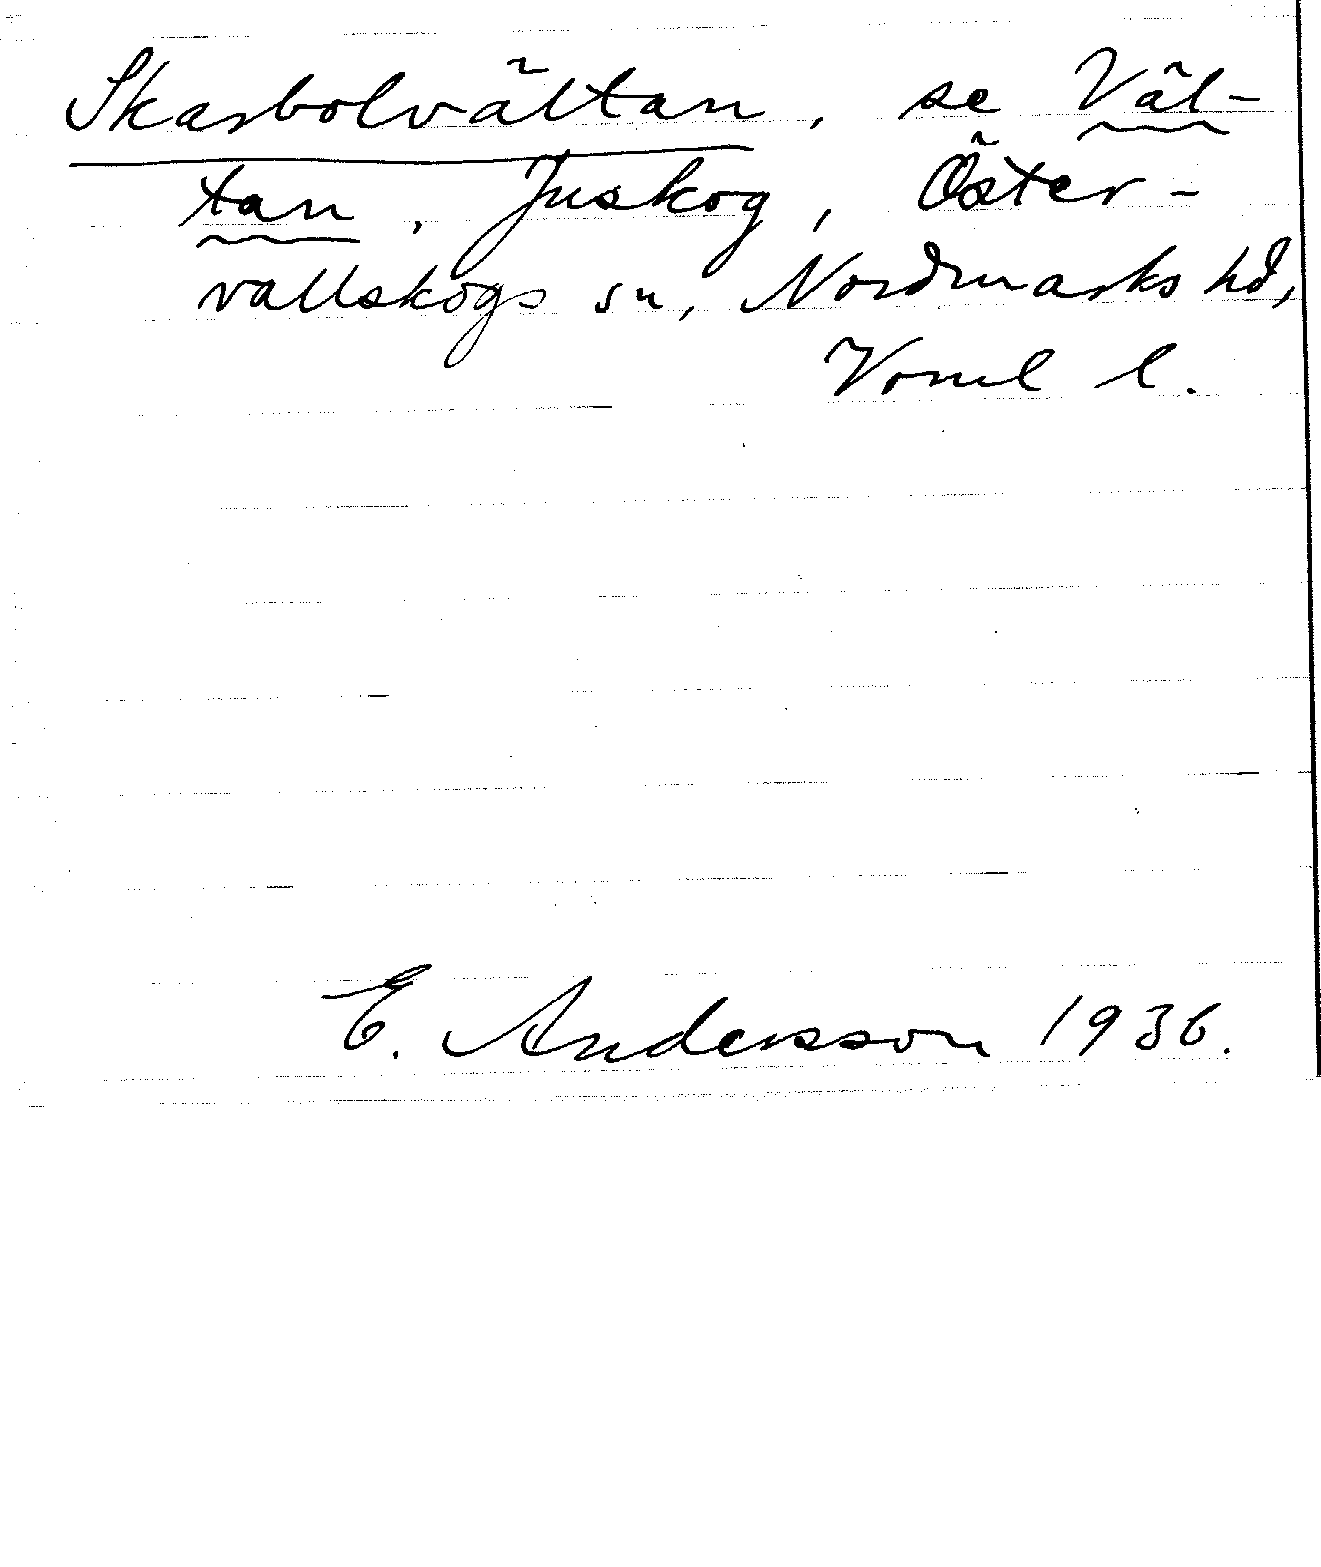 Skarbolvältan, se Väl-
tan, Juskog, Öster-
vallskogs sn, Nordmarks hd,
Verml l.
E. Andersson 1936.